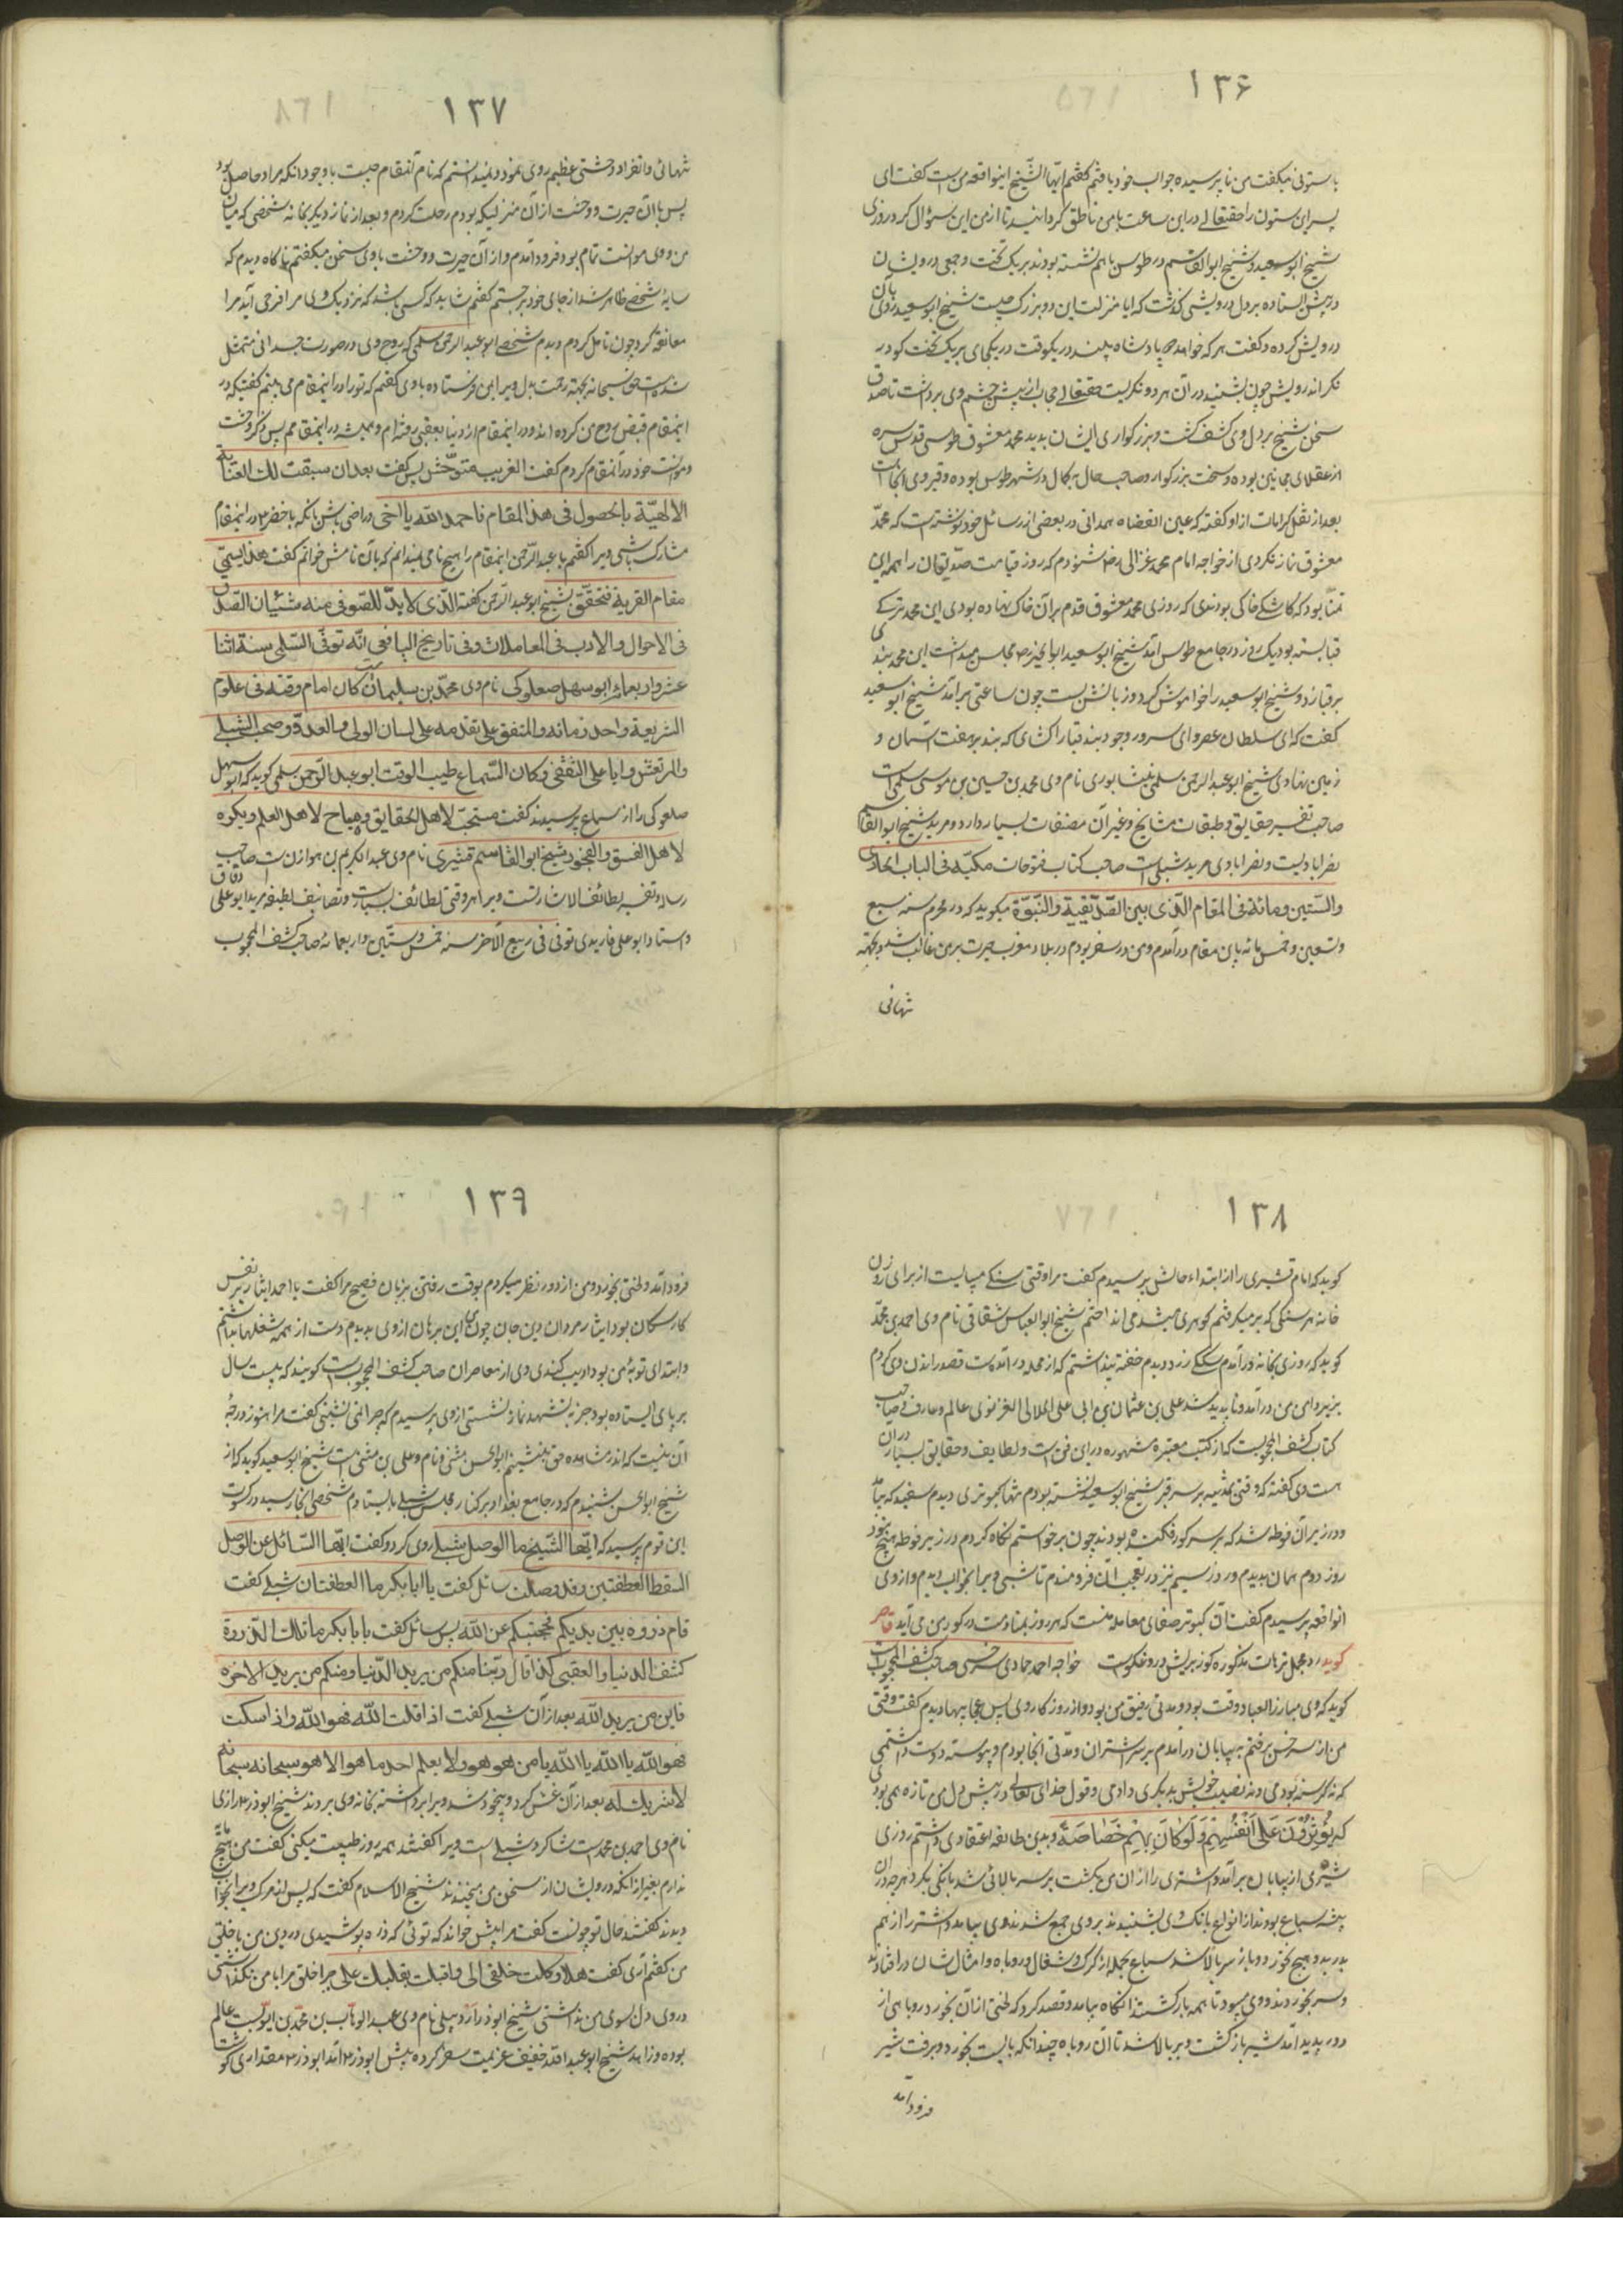 ۱۳۶
باستونی میکفت من ناپرسیده جواب خود یافتم کفتم ایها الشیخ اینواقعه من است کفت ای
پسر این ستون را حقتعالی در این ساعت با من ناطق کردانید تا از من این سؤال کرد روزی
شیخ ابو سعید و شیخ ابو القاسم در طوس با هم نشسته بودند بر یک تخت و جمعی درویشان
در پیش ایستاده بر دل درویشی کذشت که ایا منزلت این دو بزرک چیست شیخ ابو سعید روی بآن
درویش کرده و کفت هر که خواهد که پادشاه بیند در یکوقت در یکجای بر یک تخت کو در
نکر اندرویش چون بشنید در آن هر دو نکریست حقتعالی حجاب از پیش چشم وی برداشت تا صدق
سخن شیخ بر دل وی کشف کشت و بزرکواری ایشان بدید محمد معشوق طوسی قدس سره
از عقلای مجانین بوده و سخت بزرکوار و صاحب حال بکمال در شهر طوس بوده و قبر وی انجاست
بعد از نقل کرامات از او کفته که عین القضاه همدانی در بعضی از رسائل خود نوشته است که محمد
معشوق نماز نکردی از خواجه امام محمد غزالی رض شنودم که روز قیامت صدیقان را همه این
تمنا بود که کاشکی خاکی بودندی که روزی محمد معشوق قدم بر آن خاک نهاده بودی این محمد ترکی
قبا بسته بود یک روز در جامع طوس آمد شیخ ابو سعید ابو الخیر رض مجلس میداشت این محمد بندی
بر قبا زد و شیخ ابو سعید را خواموش کرد و زبانش بست چون ساعتی برآمد شیخ ابو سعید
کفت که ای سلطان عصر و ای سرور وجود بند قبا را کشای که بند بر هفت اسمان و
زمین نهادی شیخ ابو عبد الرحمن سلمی نیشابوری نام وی محمد بن حسین بن موسی سلمی است
صاحب تفسیر حقایق و طبقات مشایخ و غیر آن مصنفات بسیار دارد و مرید شیخ ابو القاسم
نصرابادیست و نصرابادی مرید شبلی است صاحب کتاب فتوحات مکیه فی الباب الحادی
والستین و مائه فی المقام الذی بین الصدیقیة والنبوة میکوید که در محرم سنه سبع
و تسعین و خمس مائه باین مقام در آمدم و من در سفر بودم در بلاد مغرب حیرت بر من غالب شد و بجهته
تنهائی
۱۳۷
تنهائی و انفراد وحشتی عظیم روی نمود و نمیدانستم که نام آنمقام چیست با وجود انکه مراد حاصل بود
پس با آن حیرت و وحشت از آن منزلیکه بودم رحلت کردم و بعد از نماز دیکر بخانه شخصی که میان
من و وی موانست تمام بود فرود آمدم و از آن حیرت و وحشت با وی سخن میکفتم ناکاه دیدم که
سایه شخصی ظاهر شد از جای خود برجستم کفتم شاید که کسی باشد که نزدیک وی مرا فرجی آید مرا
معانقه کرد چون تامل کردم دیدم شخصی ابو عبد الرحمن سلمی که روح وی در صورت جسدانی متمثل
شده است حق سبحانه بجهته رحمت بدل ویرا بمن فرستاده با وی کفتم که تو را در اینمقام می بینم کفتیکه در
اینمقام قبض روح من کرده اند و در اینمقام از دنیا بعقبی رفته ام و همیشه در اینمقامم پس ذکر وحشت
و موانست خود در آنمقام کردم کفت الغریب متوحش پس کفت بعد ان سبقت لک العنایه
الالهیة بالحصول فی هذا المقام فاحمد الله یا اخی و راضی باش بانکه با خضر ع در اینمقام
مشارک باشی ویرا کفتم یا عبد الرحمن اینمقام را هیچ نامی نمیدانم که بآن نامش خوانم کفت هذا یسمی
مقام القربة فتحقق شیخ ابو عبد الرحمن کفته الذی لا بد للصوفی منه شیئان الصدق
فی الاحوال والادب فی المعاملات و فی تاریخ الیافعی انه توفی السلمی سنة اثنا
عشر و اربعمائه ابو سهل صعلوکی نام وی محمد بن سلیمان است کان امام وقته فی علوم
الشریعة واحد زمانه والمتفق علی تقدمه علی لسان الولی والعدو و صحب الشبلی
والمرتعش و ابا علی الثقفی و کان السماع طیب الوقت ابو عبد الرحمن سلمی کوید که ابو سهل
صلعوکی را از سماع پرسیدند کفت مستحب لاهل الحقایق و مباح لاهل العلم و یکره
لاهل الفسق والفجور شیخ ابو القاسم قشیری نام وی عبد الکریم بن هوازن است صاحب
رساله و تفسیر لطائف الاشاراتست و برا هر وقتی لطائف بسیار است و تصانیف لطیفه مرید ابو علی دقاق
و استاد ابو علی فارمدی توفی فی ربیع الاخر سنه خمس و ستین و اربعمائه صاحب کشف المحجوب
۱۳۸
کوید که امام قشیری را از ابتداء حالش پرسیدم کفت مرا وقتی سنکی میبایست از برای روزن
خانه هر سنکی که بر میکرفتم کوهری میشد می انداختم شیخ ابو العباس شقاقی نام وی احمد بن محمد
کوید که روزی بخانه در آمدم سکی زرد دیدم خفته پنداشتم که از محله در آمده است قصد راندن وی کردم
بزیر دامن من در آمد و ناپدید شد علی بن عثمان بن ابی علی الملالی الغزنوی عالم و عارف و صاحب
کتاب کشف المحجوبست که از کتب معتبره مشهوره در این فن است و لطایف و حقایق بسیار در آن
هست وی کفته که وقتی بمثنیه بر سر قبر شیخ ابو سعید نشسته بودم تنها کبوتری دیدم سفید که بیامد
و در زیر آن فوطه شد که بر سر کور فکنده بودند چون برخواستم نکاه کردم در زیر فوطه هیچ نبود
روز دوم همان بدیدم و روز سیم نیز در تعجب آن فرو ماندم تا شبی ویرا بخواب دیدم و از وی
انواقعه پرسیدم کفت آن کبوتر صفای معامله منست که هر روز بمنادمت در کور من می آید قاصر
کوید رد مجمل ترهات مذکوره کوز بریش دروغکوست خواجه احمد حمادی سرخسی صاحب کشف المحجوب
کوید که وی مبارز العباد وقت بود و مدتی رفیق من بود و از روزکار وی بس عجایبها دیدم کفت وقتی
من از سرخس برفتم به بیابان در آمدم بر سر اشتران و مدتی انجا بودم و پیوسته دوست داشتمی
که کرسنه بودمی و نصیب خویش بدیکری دادمی و قول خدای تعالی در پیش دل من تازه می بودی
که یؤثرون علی انفسهم و لو کان بهم خصاصة و بدین طائفه اعتقادی داشتم روزی
شیری از بیابان بر آمد و اشتری را از آن من بکشت بر سر بالائی شد بانکی بکرد هر چه در آن
بیشه سباع بودند از انواع بانک وی بشنیدند بر وی جمع شدند وی بیامد و اشتر را از هم
بدرید و هیچ نخورد و باز سر بالا شد سباع بجمله از کرک و شغال و روباه و امثال شان در افتادند
و سر بخوردند و وی میبود تا همه بازکشتند انکاه بیامد و قصد کرد که لختی از آن بخورد روباهی از
دور پدید آمد شیر بازکشت و بر بالا شد تا آن روباه چندانکه بایست بخورد و برفت شیر
فرود آمد
۱۳۹
فرود آمد و لختی بخورد و من از دور نظر میکردم بوقت رفتن بزبان فصیح مرا کفت یا احمد ایثار بر نفس
کار سکان بود ایثار مردان دین جان چون این برهان از وی بدیدم دست از همه شغلها بداشتم
و ابتدای توبه من بود ادیب کندی وی از معاصران صاحب کشف المحجوب است کویند که بیست سال
بر پای ایستاده بود جز به تشهد نماز ننشستی از وی پرسیدم که چرا نمی نشینی کفت مرا هنوز درجه
آن نیست که اندر مشاهده حق بنشینم ابو الحسن مثنی و نام وی علی بن مثنی است شیخ ابو سعید کوید که از
شیخ ابو الحسن شنیدم که در جامع بغداد بر کنار مجلس شبلی بایستادم شخصی انجا رسید در کسوت
این قوم پرسید که ایها الشیخ ما الوصل شبلی روی کرد و کفت ایها السائل عن الوصل
اسقط العطفتین و قد وصلت سائل کفت یا ابا بکر ما العطفتان شبلی کفت
قام ذروه بین یدیکم فحجبکم عن الله پس سائل کفت یا ابا بکر ما تلک الذروة
کشف الدنیا والعقبی کذا قال ربنا منکم من یرید الدنیا و منکم من یرید الاخره
فاین من یرید الله بعد از آن شبلی کفت اذا قلت الله فهو الله و اذا سکت
فهو الله یا الله یا الله یا من هو هو ولا یعلم احد ما هو الا هو سبحانه سبحانه
لا شریک له بعد از آن غش کرد و بیخود شد و برا برداشته بخانه وی بردند شیخ ابو ذر رازی
نام وی احمد بن محمد است شاکرد شبلی است ویرا کفتند همه روز طیبت میکنی کفت من هیچ مایه
ندارم بغیر از انکه درویشان از سخن من میخندند شیخ الاسلام کفت که پس از مرک ویرا بخواب
دیدند کفتند حال تو چونست کفت مرا پیش خواند که توئی که ذره پوشیدی در دین من با خلق
من کفتم آری کفت هلا وکلت خلقی الی و اقبلت بقلبک علی چرا خلق مرا با من نکذاشتی
و روی دل سوی من نداشتی شیخ ابو ذر اردبیلی نام وی عبد الوهاب بن محمد بن ایوبست عالم
بوده و زاهد شیخ ابو عبد الله خفیف عزیمت سفر کرده پیش ابو ذر آمد ابو ذر مقداری کوشت